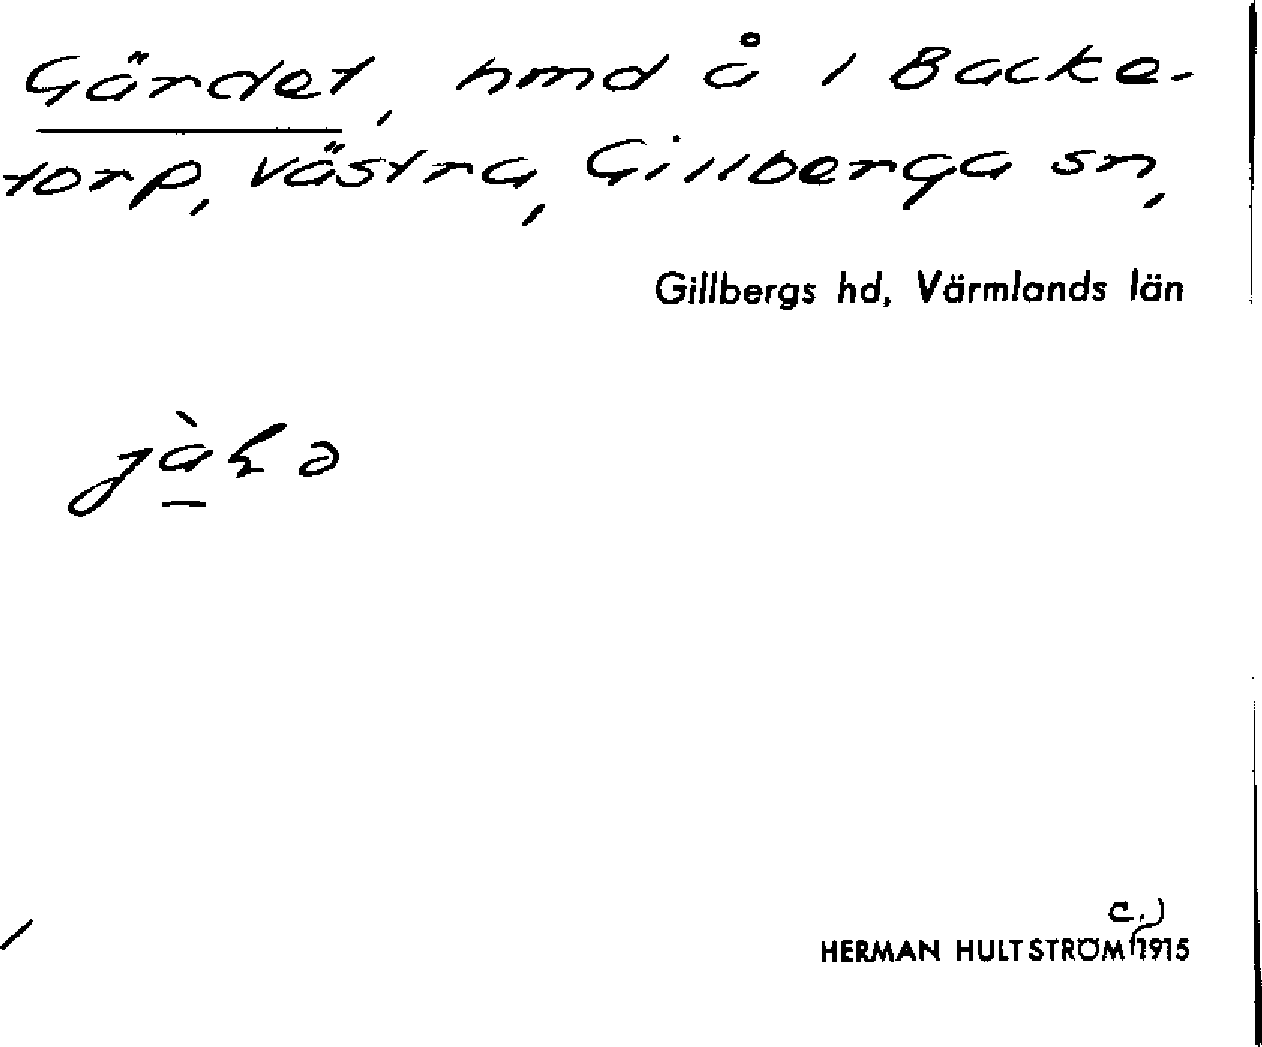 Gärdet, hmd å i Backe-
torp, Västra, Gillberga sn,
Gillbergs hd, Värmlands län
c.)
HERMAN HULTSTRÖM 1915